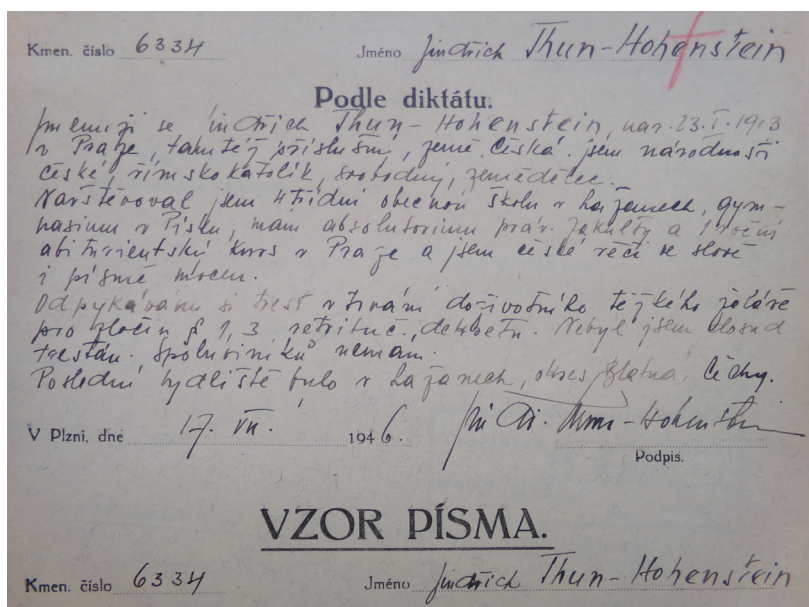 Kmen. číslo 6334 Jméno Jindřich Thun-Hohenstein
Podle diktátu.
Jmenuji se Jindřich Thun-Hohenstein, nar. 23.I.1913
v Praze, tamtéž příslušný, země Česká. jsem národnosti
české, římskokatolík, svobodný, zemědělec.
Navštěvoval jsem 4třídní obecnou školu v Lažanech, gym-
nasium v Písku, mám absolutorium práv. fakulty a 1 roční
abiturientský kurs v Praze a jsem české řeči ve slově
i písmě mocen.
Odpykávám si trest v trvání doživotního těžkého žaláře
pro zločin § 1, 3 retribuč. dekretu. Nebyl jsem dosud
trestán. Spoluviníků nemám.
Poslední bydliště bylo v Lažanech, okres Blatná, Čechy.
V Plzni, dne 17. VII. 1946. Jindř. Thun-Hohenstein
Podpis.
VZOR PÍSMA.
Kmen. číslo 6334 Jméno Jindřich Thun-Hohenstein